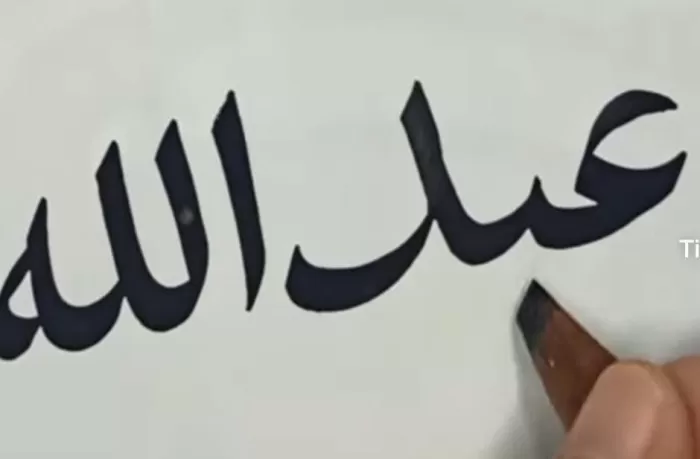 عبد الله
Ti